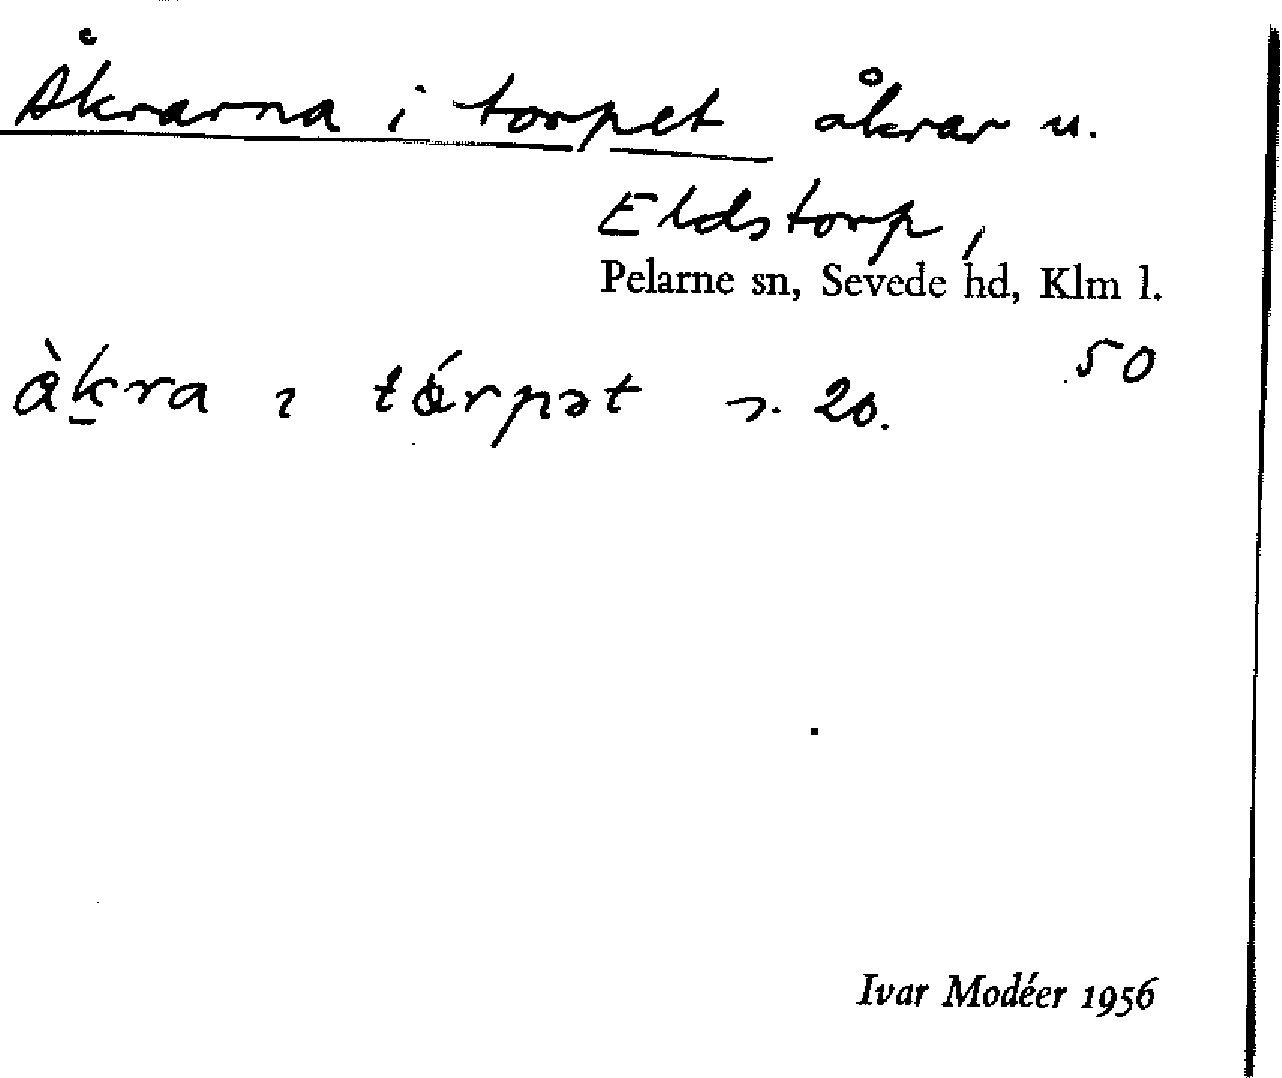 Åkrarna i torpet åkrar u.
Eldstorp,
Pelarne sn, Sevede hd, Klm l.
50
àkra ı tárpət 20.
Ivar Modéer 1956